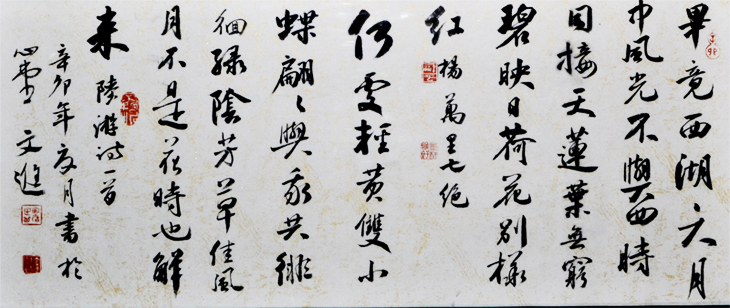 畢竟西湖六月
中風光不與四時
同接天蓮葉無窮
碧映日荷花別樣
紅 楊萬里七絕
何處輕黃雙小
蝶翩〻與我共徘
徊綠陰芳草佳風
月不是花時也解
來 陸游詩一首
辛卯年夏月書於
心 文